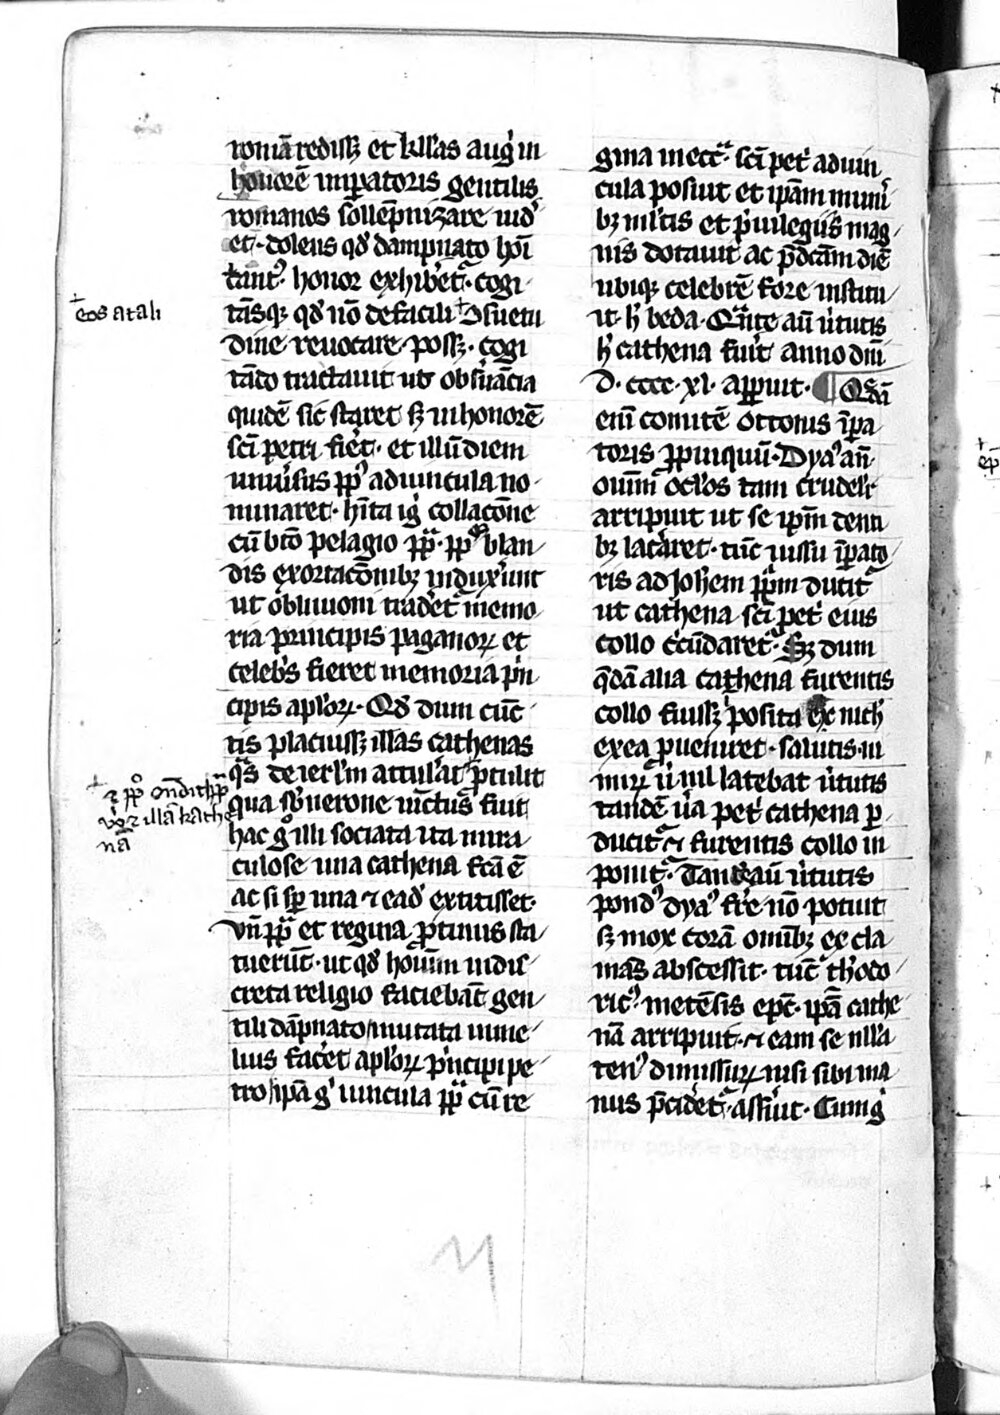 romā redisꝫ et kl'as aug̉ in
honorē imꝑatoris gentilis
romanos sollēpnizare uid'
et · dolens qď dampnato hoī
tant⁹ honor exhibet̉ · cogi
tāsqꝫ qď nō de facili ꝯsuetu
dine reuocare possꝫ · cogi
tādo tractauit ut obs̉uācia
quidē sic staret sꝫ in honorē
scī petri fiet̉ · et illū diem
uniủsus ppl̉s ad uincula no
minaret · hīta ig̉ collacōne
cū bt̄o pelagio pp̄a · ppl̉m blan
dis exortacōnibꝫ induxer̉nt
ut obliuioni tradet̉ memo
ria principis paganoꝝ et
celebs̉ fieret memoria p̉n
cipis apl̉oꝝ · Qď dum cūc
tis placuissꝫ illas cathenas
q̄s de ierl̉m attulat̉ ꝓtulit
qua sb̉ nerone uinctus fuit
hac g̉ illi sociata ita mira
culose una cathena fcā ē
ac si sꝑ una ⁊ eaď extitisset ·
vn̄ pp̄a et regina ꝓtinus sta
tuerūt · ut qď hoīum indis
creta religio faciebāt gen
tili dāpnato / mutata in me
lius facet̉ apl̉oꝝ p̉ncipi pe
tro / ipā g̉ uincula pp̄a cū re
eos a tali
⁊ ꝑp̉o on̄dit pp̄a
vō ⁊ illā kathe
nā
gina in ecc̄a scī pet̉ ad uin
cula posuit et ipām muni
bꝫ ml̉tis et p̉uilegijs mag
nis dotauit ac p̄dcām diē
ubiqꝫ celebrē fore institu
it h̉ beda · Q̄nte aū ủtutis
h̉ cathena fuit̉ anno dn̄i
D · cccc · xl · aꝑuit · ¶ Qdā
enī comitē ottonis īpa
toris ꝓpinquū · Dya⁹ an̄
oūim ocl̉os tam crudel̉r
arripuit ut se ipm̄ denti
bꝫ lacaret̉ · tūc iussu īpato
ris ad Joh̉em pp̄m ducit̉
ut cathena scī pet̉ eius
collo c̉cūdaret̉ · Sꝫ dum
q̄dā alia cathena furentis
collo fuissꝫ posita ex nich̉
ex ea ꝓueniret · salutis · ni
mirꝝ ủ nil latebat ủtutis
tandē ủa pet̉ cathena ꝑ
ducit̉ ⁊ furentis collo in
ponit̉ · Tante aū ủtutis
pond⁹ dya⁹ fr̉e nō potuit
sꝫ mox corā omībꝫ ex cla
mās abscessit · tūc th̉odo
ric⁹ · metēsis ep̄c · ipā cathe
nā arripuit · ⁊ eam se null̉a
ten⁹ dimissurꝝ nisi sibi ma
nus p̄cidet̉ · assūit · Cum g̉